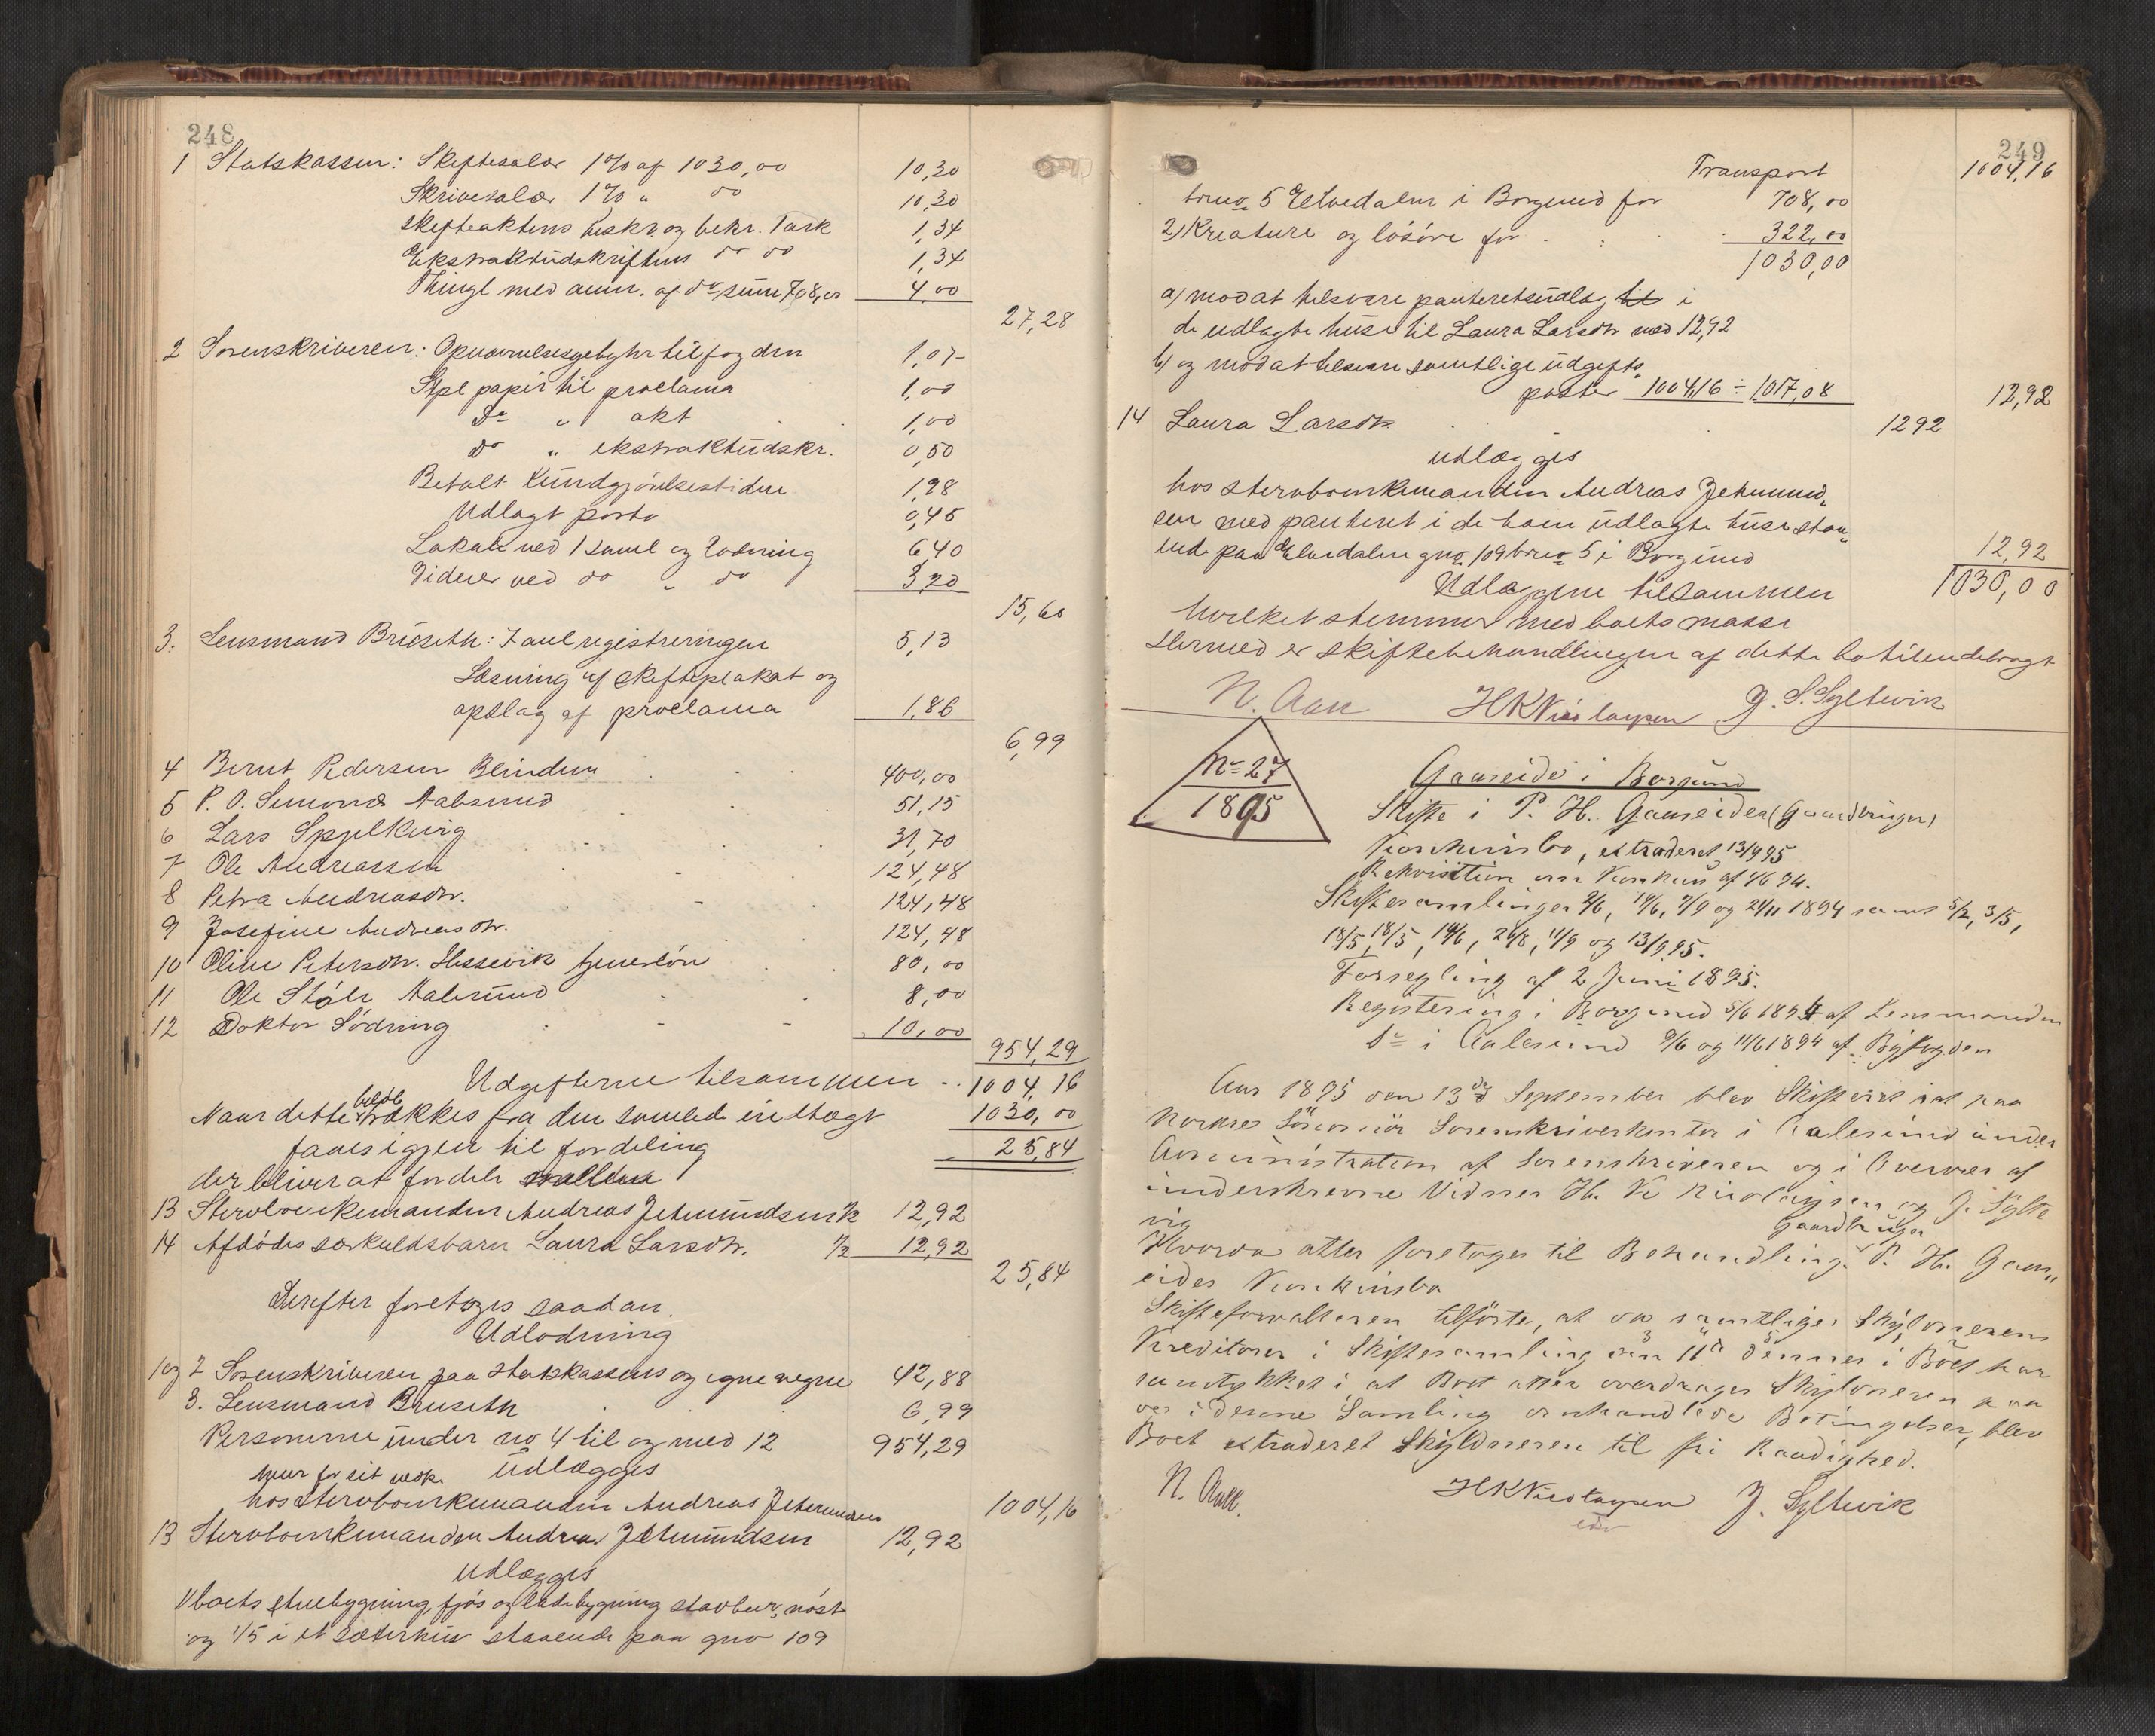 248
1 Statskassen: Skiftesalær 1% af 1030,00 10,30
Skrivesalær 1% " do 10,30
skifteaktens beskr. og bekr. Task 1,34
Ekstraktudskriftens do do 1,34
Thingl med anm. af do sum 708,00 4 00
27,28
2 Sorenskriveren: Opnævnelsesgebyhr tilfogden 1,07
Stpl papir til proclama 1,00
do " akt 1,00
do " ekstraktudskr. 0,50
Betalt Kundgjörelsestidne 1,98
Udlagt porto 0,45
Lokale ved 1 saml og lodning 6,40
Vidner ved do " do 3,20
15,60
3. Lensmand Bruseth: For registreringen 5,13
Læsning af skifteplakat og
opslag af proclama 1,86
6,99
4 Bernt Pedersen Blindem 400,00
5 P. O. Simonds Aalesund 51,15
6 Lars Spjelkevig 31,70
7 Ole Andreassen 124,48
8 Petra Andreasdtr. 124,48
9 Josefine Andreasdtr. 124,48
10 Oline Petersdtr. Hessevik tjenerlön 80,00
11 Ole Stöle Aalesund 8,00
12 Doktor Södring 10,00
954,29
Udgifterne tilsammen 1004,16
Naar dette beløb trækkes fra den samlede indtægt 1030,00
faaes igjen til fordeling 25,84
der bliver at fordele mellem
13 Stervboenkemanden Andreas Jetmundsen 1/2 12,92
14 Afdødes særkuldsbarn Laura Larsdtr. 1/2 12,92
25,84
Derefter foretoges saadan
Udlodning
1 og 2 Sorenskriveren paa statskassens og egne vegne 42,88
3. Lensmand Bruseth 6,99
Personerne under no 4 til og med 12 954,29
hver for sit vedk. udlægges
hos stervboenkemanden Andreas Jetmundsen 1004,16
13 Stervboenkemanden Andreas Jetmundsen 12,92
udlægges
1) boets stuebygning, fjös og ladebygning stavbur, nöst
og 1/5 i et sæterhus staaende paa gno 109
249
Transport 1004,16
brno 5 Elvedalen i Borgund for 708,00
2) Kreature og lösöre for 322,00
1030,00
a) mod at tilsvare panteretsudlæg til i
de udlagte huse til Laura Larsdtr med 12,92
b) og mod at tilsvare samtlige udgifts
poster 1004,16 ÷ 1017,08 12,92
14 Laura Larsdtr. 12 92
udlægges
hos stervboenkemanden Andreas Jetmund-
sen med panteret i de ham udlagte huse staa-
ende paa Elvedalen gno 109 brno 5 i Borgund 12,92
Udlæggene tilsammen 1030,00
hvilket stemmer med boets masse
Hermed er skiftebehandlingen af dette bo tilendebragt
N. Aall HKNicolaysen J. S. Syltevik
No 27
1895
Gaaseide i Borgund
Skifte i P. H. Gaaseides (Gaardbruger)
Konkursbo, extraderet 13/9 95
Rekvisition om Konkurs af 1/6 94.
Skiftesamlinger 2/6, 19/6, 7/9 og 24/11 1894 samt 5/2, 3/5,
18/5, 18/5, 14/6, 24/8, 11/9 og 13/9 95.
Forsegling af 2 Juni 1895.
Registering i Borgund 5/6 1894 af Lensmanden
do i Aalesund 9/6 og 11/6 1894 af Byfogden
Aar 1895 den 13de September blev Skifteret sat paa
Nordre Söndmör Sorenskriverkontor i Aalesund under
Administration af Sorenskriveren og i Overvær af
underskrevne Vidner H. K. Nicolaysen og J. Sylte
vig
Hvorda atter foretoges til Behandling Gaardbruger P. H. Gaas-
eides Konkursbo
Skifteforvalteren tilförte, at da samtlige Skyldnerens
Kreditorer i Skiftesamling den 11te dennes i Boet har
samtykket i, at Boet atter overdrages Skyldneren paa
de i denne Samling omhandlede Betingelser, blev
Boet extraderet Skyldneren til fri Raadighed.
N. Aall. HKNicolaysen J. Syltevik